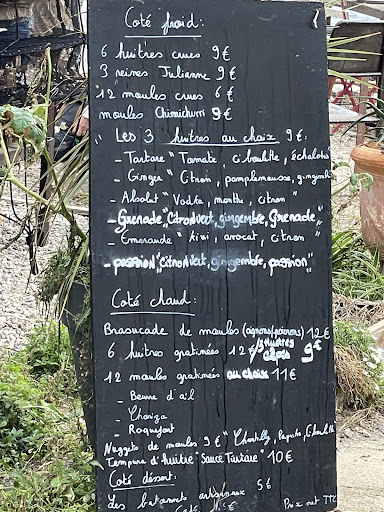 Coté froid :
6 huîtres crues 9€
3 reines Julianne 9€
12 moules crues 6€
moules Chimichurri 9€
Les 3 huîtres au choix 9€.
- Tartare " Tomate, ciboulette, échalotte
- Ginger " Citron, pamplemousse, gingembre
- Absolut " Vodka, menthe, citron "
- Grenade "Citron vert, gingembre, Grenade,"
- Emeraude " kiwi, avocat, citron "
- passion "Citron vert, gingembre, passion"
Coté chaud :
Brasucade de moules (oignons/poivrons) 12€
6 huîtres gratinées 12€/3 HUITRES 9€
12 moules gratinées au choix 11€
- Beurre d'ail
- Chorizo
- Roquefort
Nuggets de moules 9€ " Chantilly, Paprika, Ciboulette
Tempura d'huître "Sauce Tartare" 10€
Coté déssert :
Les artisanaux 5€
Prix net TTC
Café